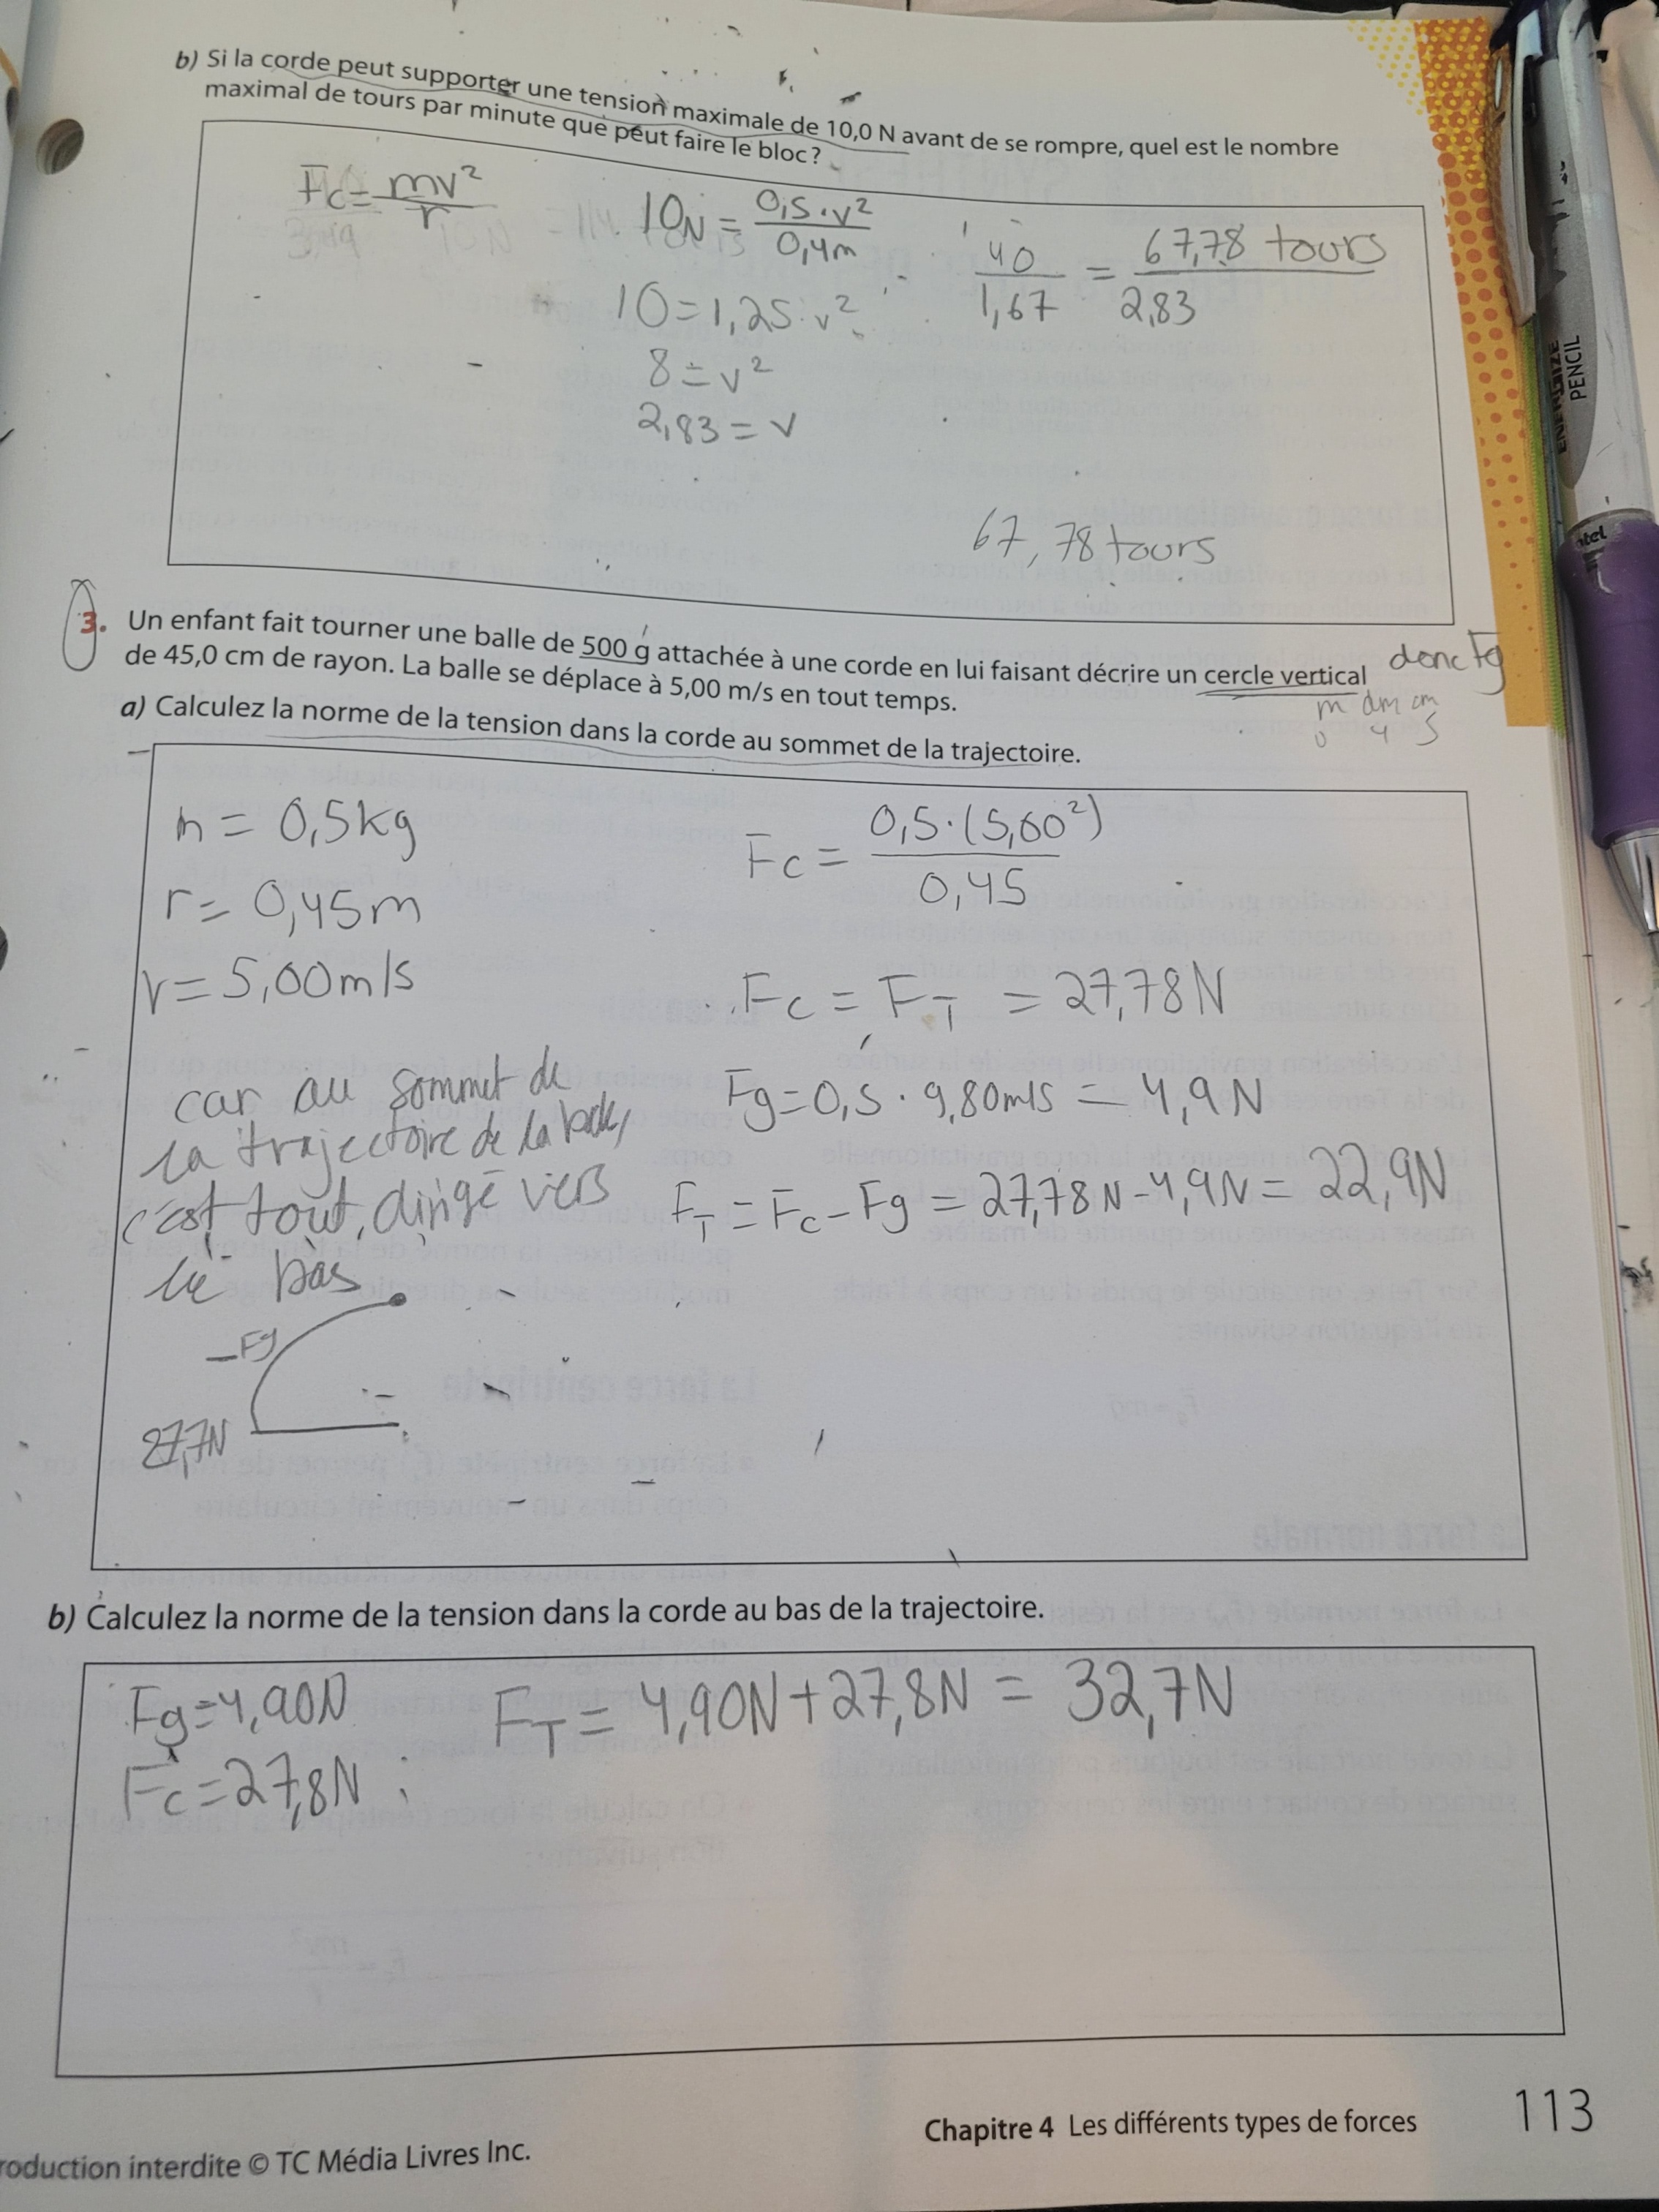 b) Si la corde peut supporter une tension maximale de 10,0 N avant de se rompre, quel est le nombre
maximal de tours par minute que peut faire le bloc ?
Fc = mv² / r
10N = 0,5 · v² / 0,4m
40 / 1,67 = 67,78 tours / 2,83
10 = 1,25 · v²
8 = v²
2,83 = v
67,78 tours
3. Un enfant fait tourner une balle de 500 g attachée à une corde en lui faisant décrire un cercle vertical
donc Fg
de 45,0 cm de rayon. La balle se déplace à 5,00 m/s en tout temps.
m dm cm
0 4 5
a) Calculez la norme de la tension dans la corde au sommet de la trajectoire.
m = 0,5kg
r = 0,45m
v = 5,00m/s
Fc = 0,5 · (5,00²) / 0,45
Fc = FT = 27,78N
car au sommet de
la trajectoire de la
c'est tout, dirigé vers
le bas
Fg = 0,5 · 9,80m/s = 4,9N
FT = Fc - Fg = 27,78N - 4,9N = 22,9N
Fg
27,7N
b) Calculez la norme de la tension dans la corde au bas de la trajectoire.
Fg = 4,90N
Fc = 27,8N
FT = 4,90N + 27,8N = 32,7N
Chapitre 4 Les différents types de forces 113
roduction interdite © TC Média Livres Inc.
PENCIL